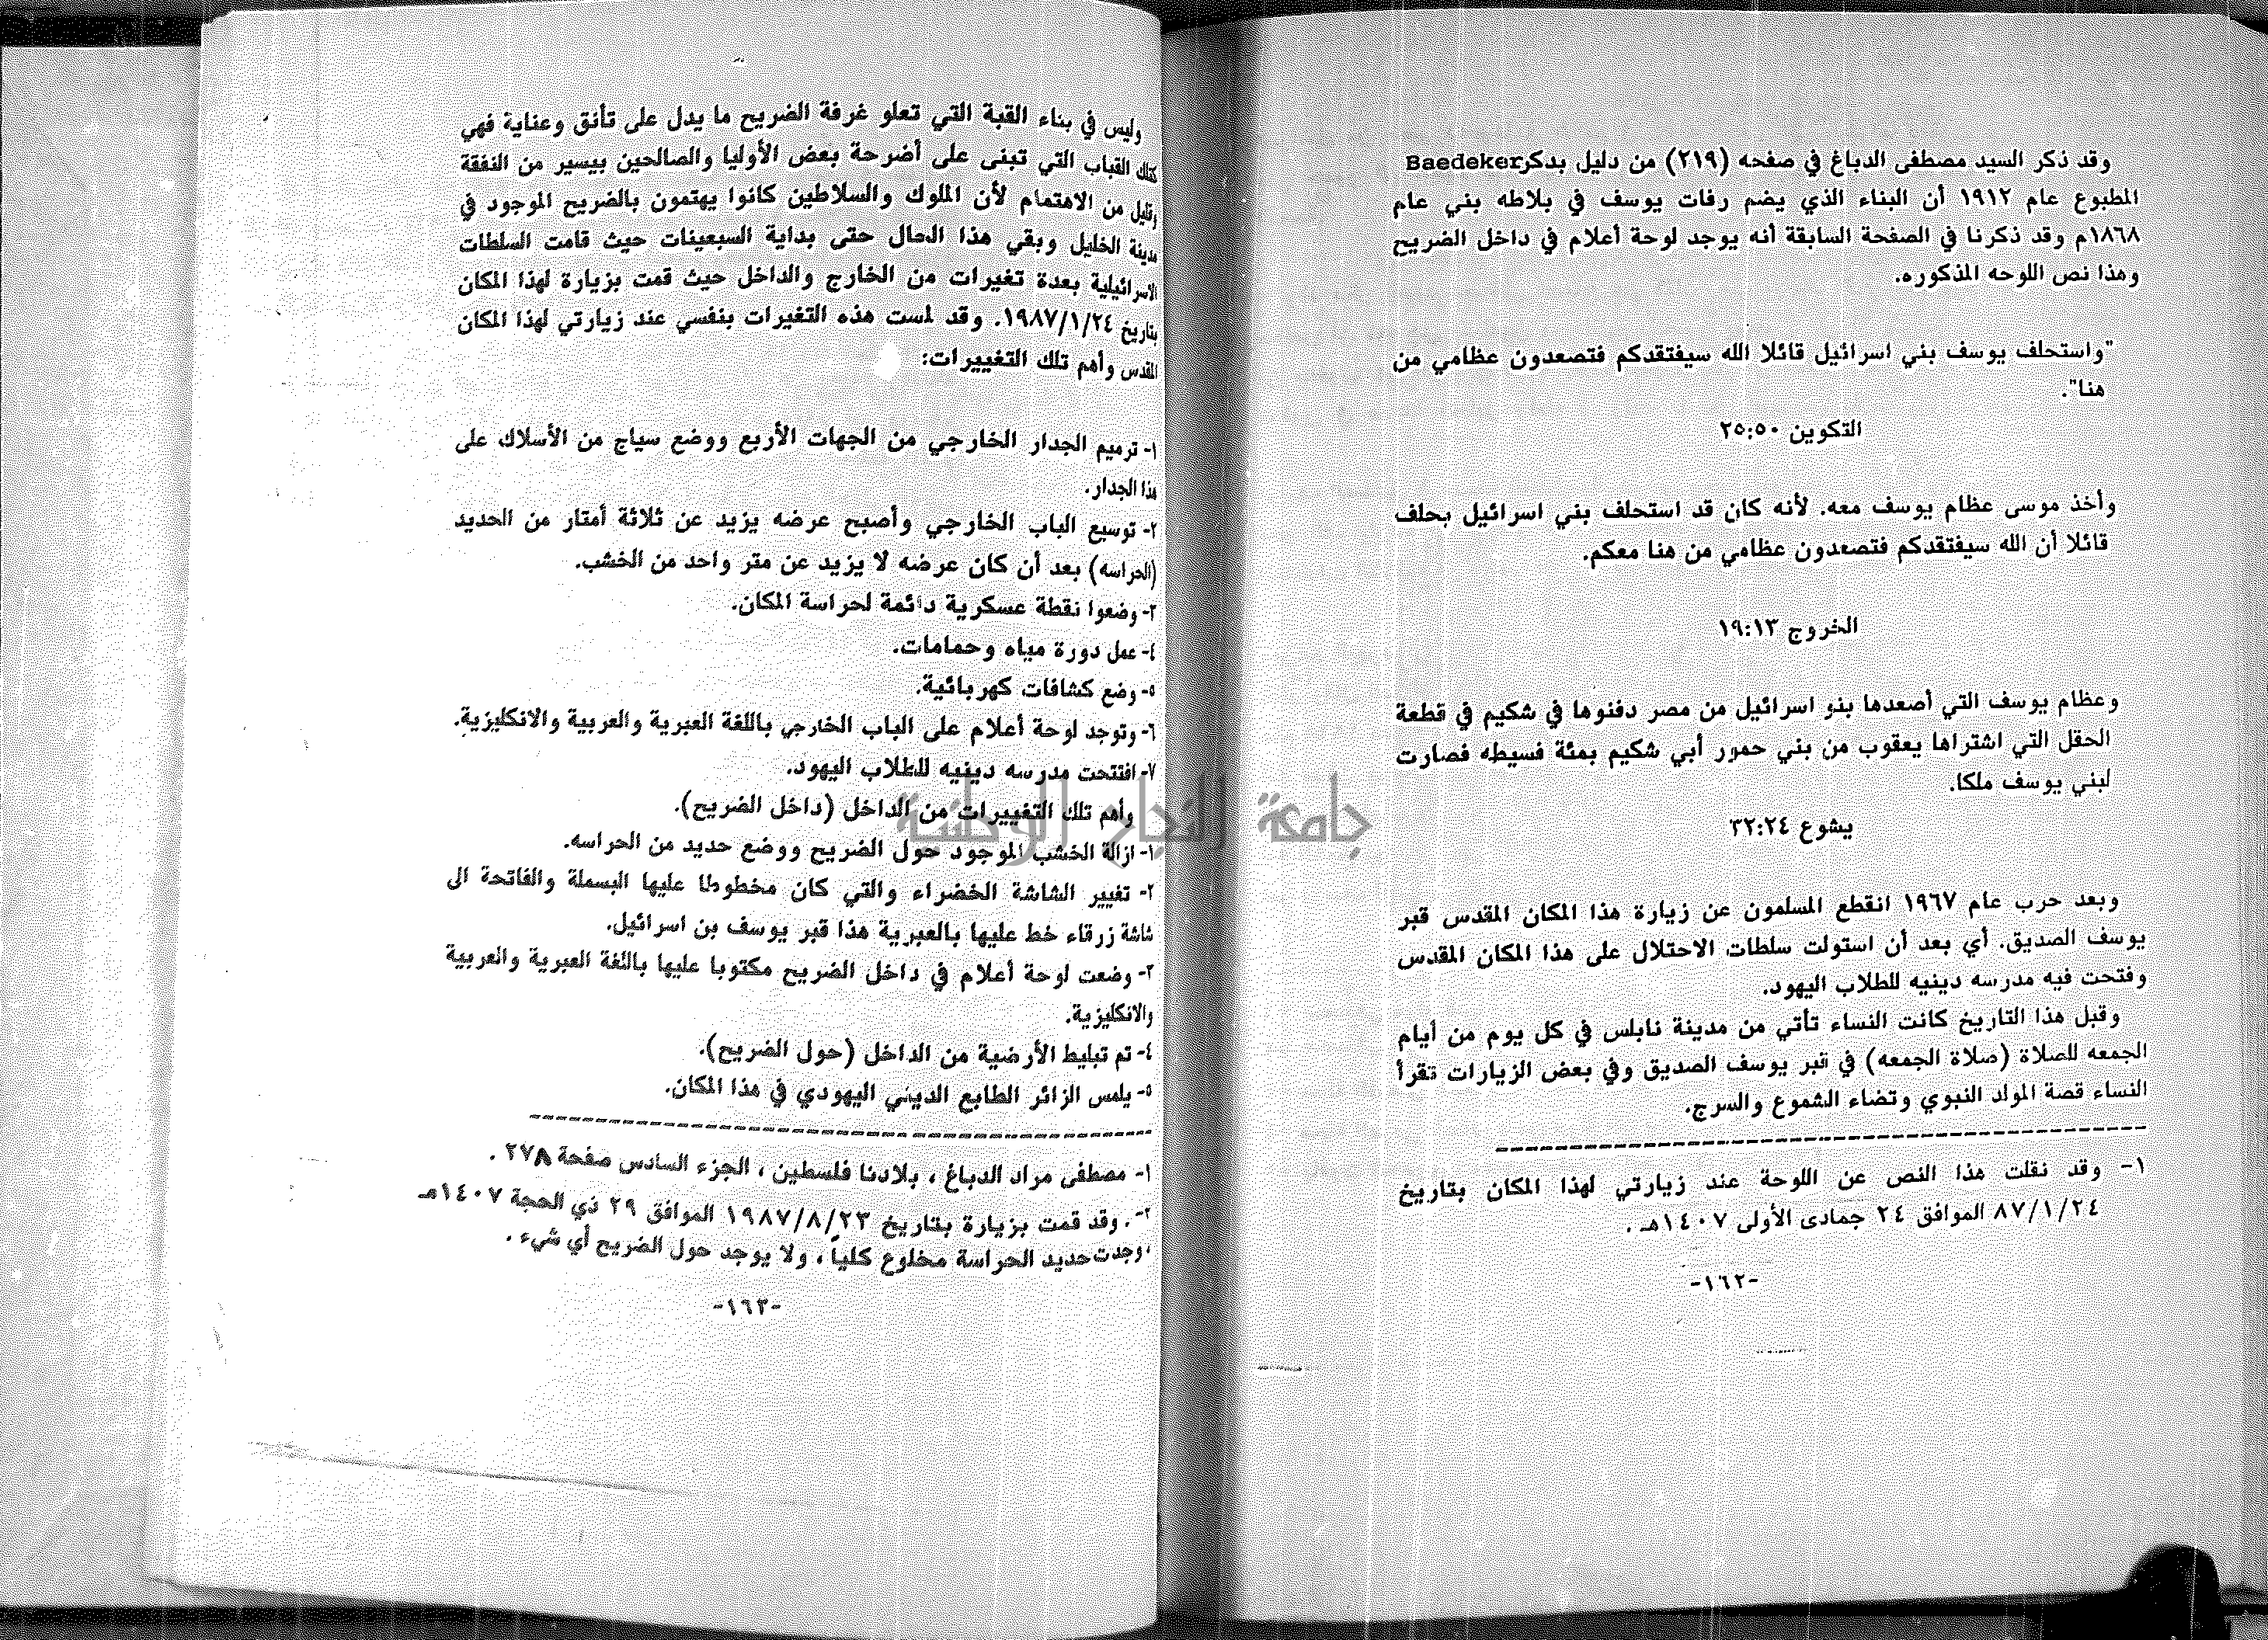 وقد ذكر السيد مصطفى الدباغ في صفحه (٢١٩) من دليل بدكر Baedeker
المطبوع عام ١٩١٢ أن البناء الذي يضم رفات يوسف في بلاطه بني عام
١٨٦٨م وقد ذكرنا في الصفحة السابقة أنه يوجد لوحة أعلام في داخل الضريح
وهذا نص اللوحه المذكوره.
"واستحلف يوسف بني اسرائيل قائلا الله سيفتقدكم فتصعدون عظامي من
هنا".
التكوين ٢٥:٥٠
وأخذ موسى عظام يوسف معه. لأنه كان قد استحلف بني اسرائيل بحلف
قائلا أن الله سيفتقدكم فتصعدون عظامي من هنا معكم.
الخروج ١٩:١٣
وعظام يوسف التي أصعدها بنو اسرائيل من مصر دفنوها في شكيم في قطعة
الحقل التي اشتراها يعقوب من بني حمور أبي شكيم بمئة فسيطه فصارت
لبني يوسف ملكا.
يشوع ٣٢:٢٤
وبعد حرب عام ١٩٦٧ انقطع المسلمون عن زيارة هذا المكان المقدس قبر
يوسف الصديق. أي بعد أن استولت سلطات الاحتلال على هذا المكان المقدس
وفتحت فيه مدرسه دينيه للطلاب اليهود.
وقبل هذا التاريخ كانت النساء تأتي من مدينة نابلس في كل يوم من أيام
الجمعه للصلاة (صلاة الجمعه) في قبر يوسف الصديق وفي بعض الزيارات تقرأ
النساء قصة المولد النبوي وتضاء الشموع والسرج.
١- وقد نقلت هذا النص عن اللوحة عند زيارتي لهذا المكان بتاريخ
٨٧/١/٢٤ الموافق ٢٤ جمادى الأولى ١٤٠٧هـ .
-١٦٢-
وليس في بناء القبة التي تعلو غرفة الضريح ما يدل على تأنق وعناية فهي
كتلك القباب التي تبنى على أضرحة بعض الأوليا والصالحين بيسير من النفقة
وقليل من الاهتمام لأن الملوك والسلاطين كانوا يهتمون بالضريح الموجود في
مدينة الخليل وبقي هذا الحال حتى بداية السبعينات حيث قامت السلطات
الاسرائيلية بعدة تغيرات من الخارج والداخل حيث قمت بزيارة لهذا المكان
بتاريخ ١٩٨٧/١/٢٤. وقد لمست هذه التغيرات بنفسي عند زيارتي لهذا المكان
المقدس وأهم تلك التغييرات:
١- ترميم الجدار الخارجي من الجهات الأربع ووضع سياج من الأسلاك على
هذا الجدار.
٢- توسيع الباب الخارجي وأصبح عرضه يزيد عن ثلاثة أمتار من الحديد
(الحراسه) بعد أن كان عرضه لا يزيد عن متر واحد من الخشب.
٣- وضعوا نقطة عسكرية دائمة لحراسة المكان.
٤- عمل دورة مياه وحمامات.
٥- وضع كشافات كهربائية.
٦- وتوجد لوحة أعلام على الباب الخارجي باللغة العبرية والعربية والانكليزية.
٧- افتتحت مدرسه دينيه للطلاب اليهود.
وأهم تلك التغييرات من الداخل (داخل الضريح).
١- ازالة الخشب الموجود حول الضريح ووضع حديد من الحراسه.
٢- تغيير الشاشة الخضراء والتي كان مخطوطا عليها البسملة والفاتحة الى
شاشة زرقاء خط عليها بالعبرية هذا قبر يوسف بن اسرائيل.
٣- وضعت لوحة أعلام في داخل الضريح مكتوبا عليها باللغة العبرية والعربية
والانكليزية.
٤- تم تبليط الأرضية من الداخل (حول الضريح).
٥- يلمس الزائر الطابع الديني اليهودي في هذا المكان.
١- مصطفى مراد الدباغ ، بلادنا فلسطين ، الجزء السادس صفحة ٢٧٨ .
٢- . وقد قمت بزيارة بتاريخ ١٩٨٧/٨/٢٣ الموافق ٢٩ ذي الحجة ١٤٠٧هـ
، وجدت حديد الحراسة مخلوع كلياً ، ولا يوجد حول الضريح أي شيء .
-١٦٣-
جامعة النجاح الوطنية